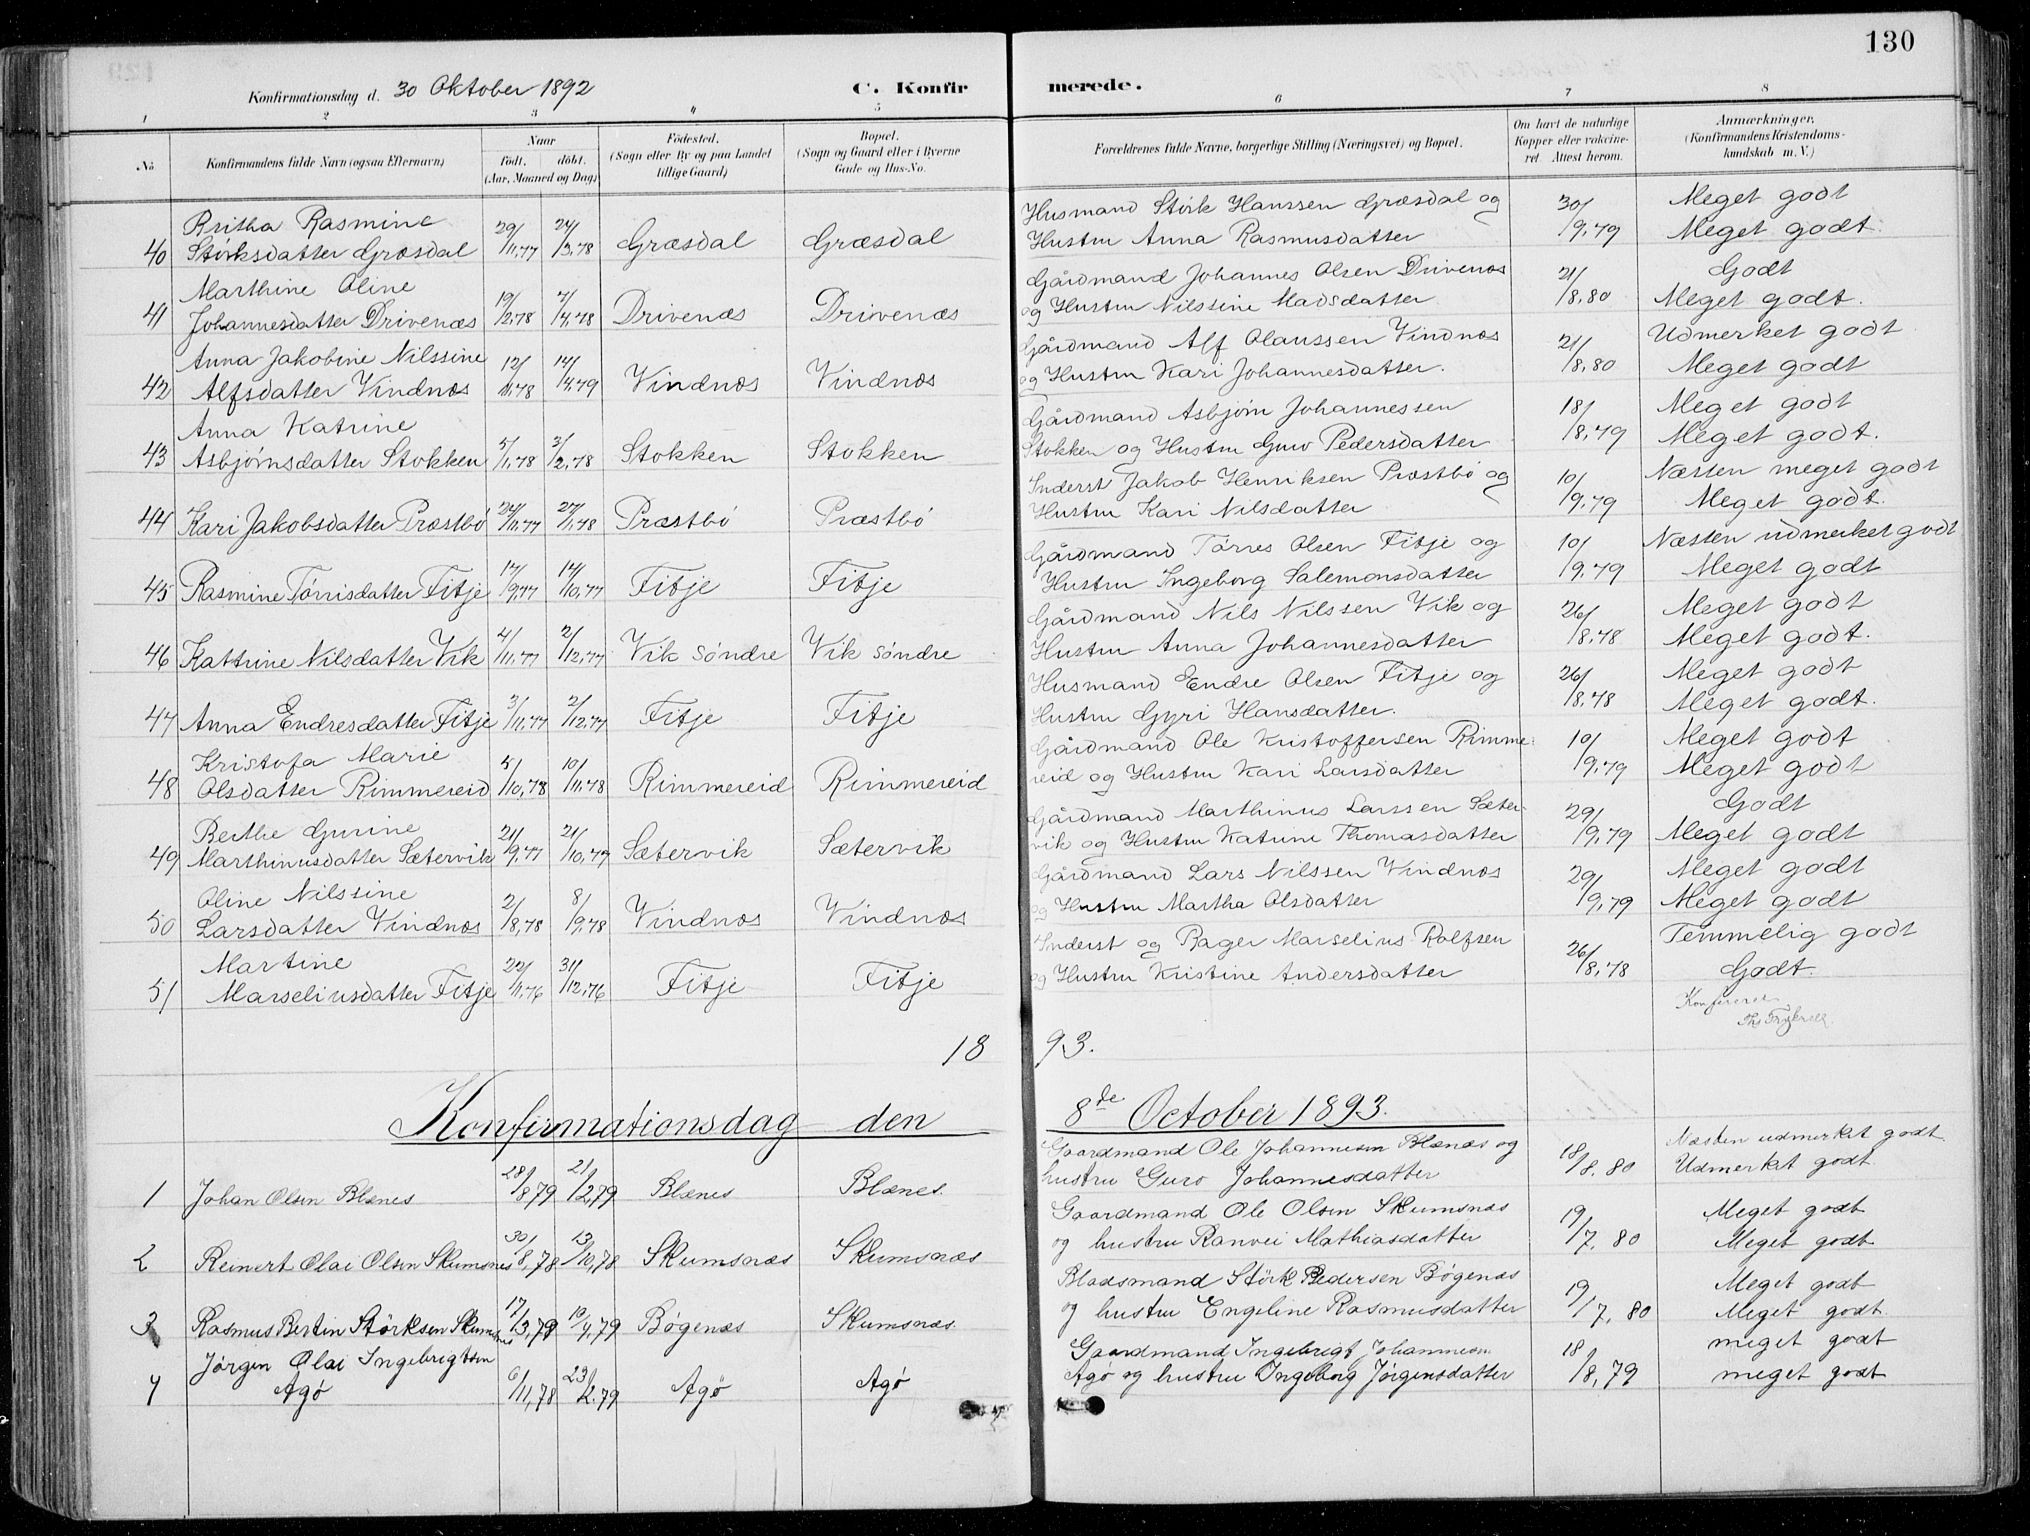 130
Konfirmationsdag d. 30 Oktober 1892 C. Konfirmerede.
1 2 3 4 5 6 7 8
No
Konfirmandens fulde Navn (ogsaa Efternavn)
Naar
født. døbt.
(Aar, Maaned og Dag)
Fødested.
(Sogn eller By og paa Landet
tillige Gaard)
Bopæl.
(Sogn og Gaard eller i Byerne
Gade og Hus-No.
Forældrenes fulde Navne, borgerlige Stilling (Næringsvei) og Bopæl.
Om havt de naturlige
Kopper eller vakcine-
ret. Attest herom.
Anmærkninger.
(Konfirmandens Kristendoms-
kundskab m. V.)
Britha Rasmine 29/ 24/ Husmand Störk Hanssen Græsdal og 30/ Meget godt
40 Störksdatter Græsdal 11,77 3,78 Græsdal Græsdal Hustru Anna Rasmusdatter 9,79 Meget godt.
Marthine Oline 19/ 7/ Gårdmand Johannes Olsen Drivenæs 21/ Godt
41 Johannesdatter Drivenæs 2,78 4,78 Drivenæs Drivenæs og Hustru Nilssine Madsdatter 8,80 Meget godt.
Anna Jakobine Nilssine 12/ 14/ Gårdmand Alf Olaussen Vindnæs 21/ Udmerket godt
42 Alfsdatter Vindnæs 11,78 4,79 Vindnæs Vindnæs og Hustru Kari Johannesdatter. 8,80 Meget godt
Anna Katrine 5/ 3/ Gårdmand Asbjørn Johannessen 18/ Meget godt
43 Asbjørnsdatter Stokken 1,78 2,78 Stokken Stokken Stokken og Hustru Guro Pedersdatter 8,79 Meget godt.
Inderst Jakob Henriksen Præstbö og 10/ Næsten meget godt
44 Kari Jakobsdatter Præstbö 24/11,77 27/1,78 Præstbö Præstbö Hustru Kari Nilsdatter 9,79 Meget godt.
Gårdmand Törres Olsen Fitje og 10/ Næsten udmerket godt
45 Rasmine Törrisdatter Fitje 17/9,77 14/10,77 Fitje Fitje Hustru Ingeborg Salemonsdatter 9,79 Meget godt
Gårdmand Nils Nilssen Vik og 26/ Meget godt
46 Kattrine Nilsdatter Vik 4/11,77 2/12,77 Vik Søndre Vik søndre Hustru Anna Johannesdatter 8,78 Meget godt.
Husmand Endre Olsen Fitje og 26/ Meget godt
47 Anna Endresdatter Fitje 3/11,77 2/12,77 Fitje Fitje Hustru Gyri Hansdatter. 8,78 Meget godt.
Kristofa Marie 5/ 10/ Gårdmand Ole Kristoffersen Rimme- 10/ Meget godt
48 Olsdatter Rimmereid 10,78 11,78 Rimmereid Rimmereid reid og Hustru Kari Larsdatter 9,79 Meget godt
Berthe Gurine 21/ 21/ Gårdmand Marthinus Larssen Sæter- 29/ Godt
49 Marthinusdatter Sætervik 9,77 10,77 Sætervik Sætervik vik og Hustru Katrine Thomasdatter 9,79 Meget godt
Oline Nilssine 2/ 8/ Gårdmand Lars Nilssen Vindnæs 29/ Meget godt
50 Larsdatter Vindnæs 8,78 9,78 Vindnæs Vindnæs og Hustru Martha Olsdatter 9,79 Meget godt
Martine 22/ 31/ Inderst og Bager Marselius Rolfsen 26/ Temmelig godt
51 Marseliusdatter Fitje 11,76 12,76 Fitje Fitje og Hustru Kristine Andersdatter 8,78 Godt.
Konfereret
18 93.
Konfirmationsdag den 8de October 1893.
Gaardmand Ole Johannesen Blænæs og 18/ Næsten udmerket godt
1 Johan Olsen Blænes 28/8,79 21/12,79 Blænes Blænes. hustru Guro Johannesdatter 8,80 Udmerket godt.
Gaardmand Ole Olsen Skumsnæs 19/ Meget godt
2 Reinert Olai Olsen Skumsnæs 30/8,78 13/10,78 Skumsnæs Skumsnæs og hustru Ranvei Mathiasdatter 7, 80 Meget godt
Pladsmand Störk Pedersen Bøgenæs 19/ Meget godt
3 Rasmus Bertin Störksen Skumsnæs 17/3,79 10/4,79 Bøgenæs Skumsnæs. og hustru Engeline Rasmusdatter 7, 80 Meget godt.
Jørgen Olai Ingebrigtsen Gaardmand Ingebrigt Johannesen 18/ meget godt
4 Agø 6/11,78 23/2,79 Agø Agø Agø og hustru Ingeborg Jørgensdatter 8,79 meget godt